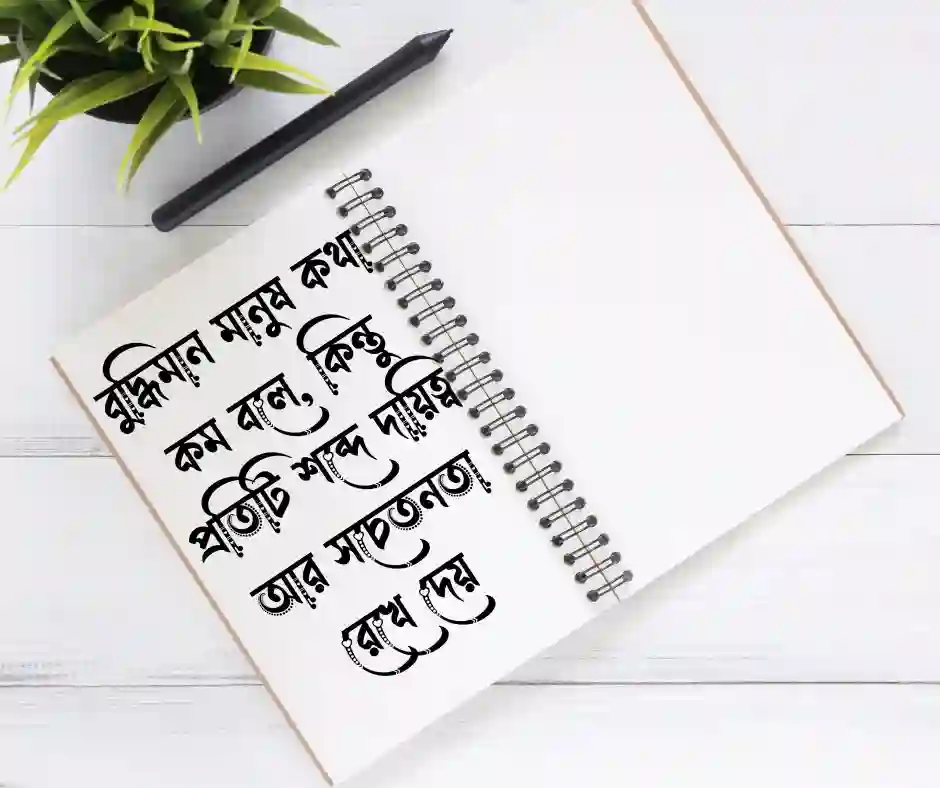 বুদ্ধিমান মানুষ কথা
কম বলে, কিন্তু
প্রতিটি শব্দে দায়িত্ব
আর সচেতনতা
রেখে দেয়